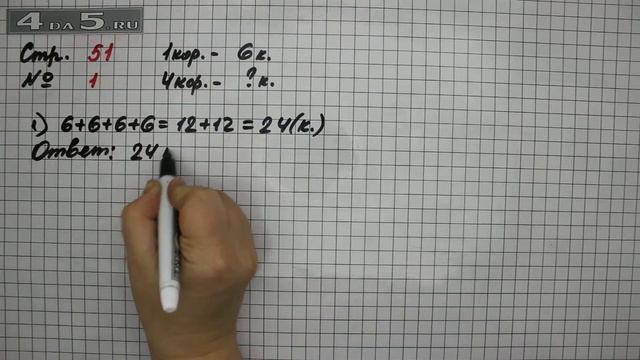 4DA5.RU
Стр. 51 1кор. - 6 к.
№ 1 4кор. - ? к.
1) 6+6+6+6 = 12+12 = 24(к.)
Ответ: 24